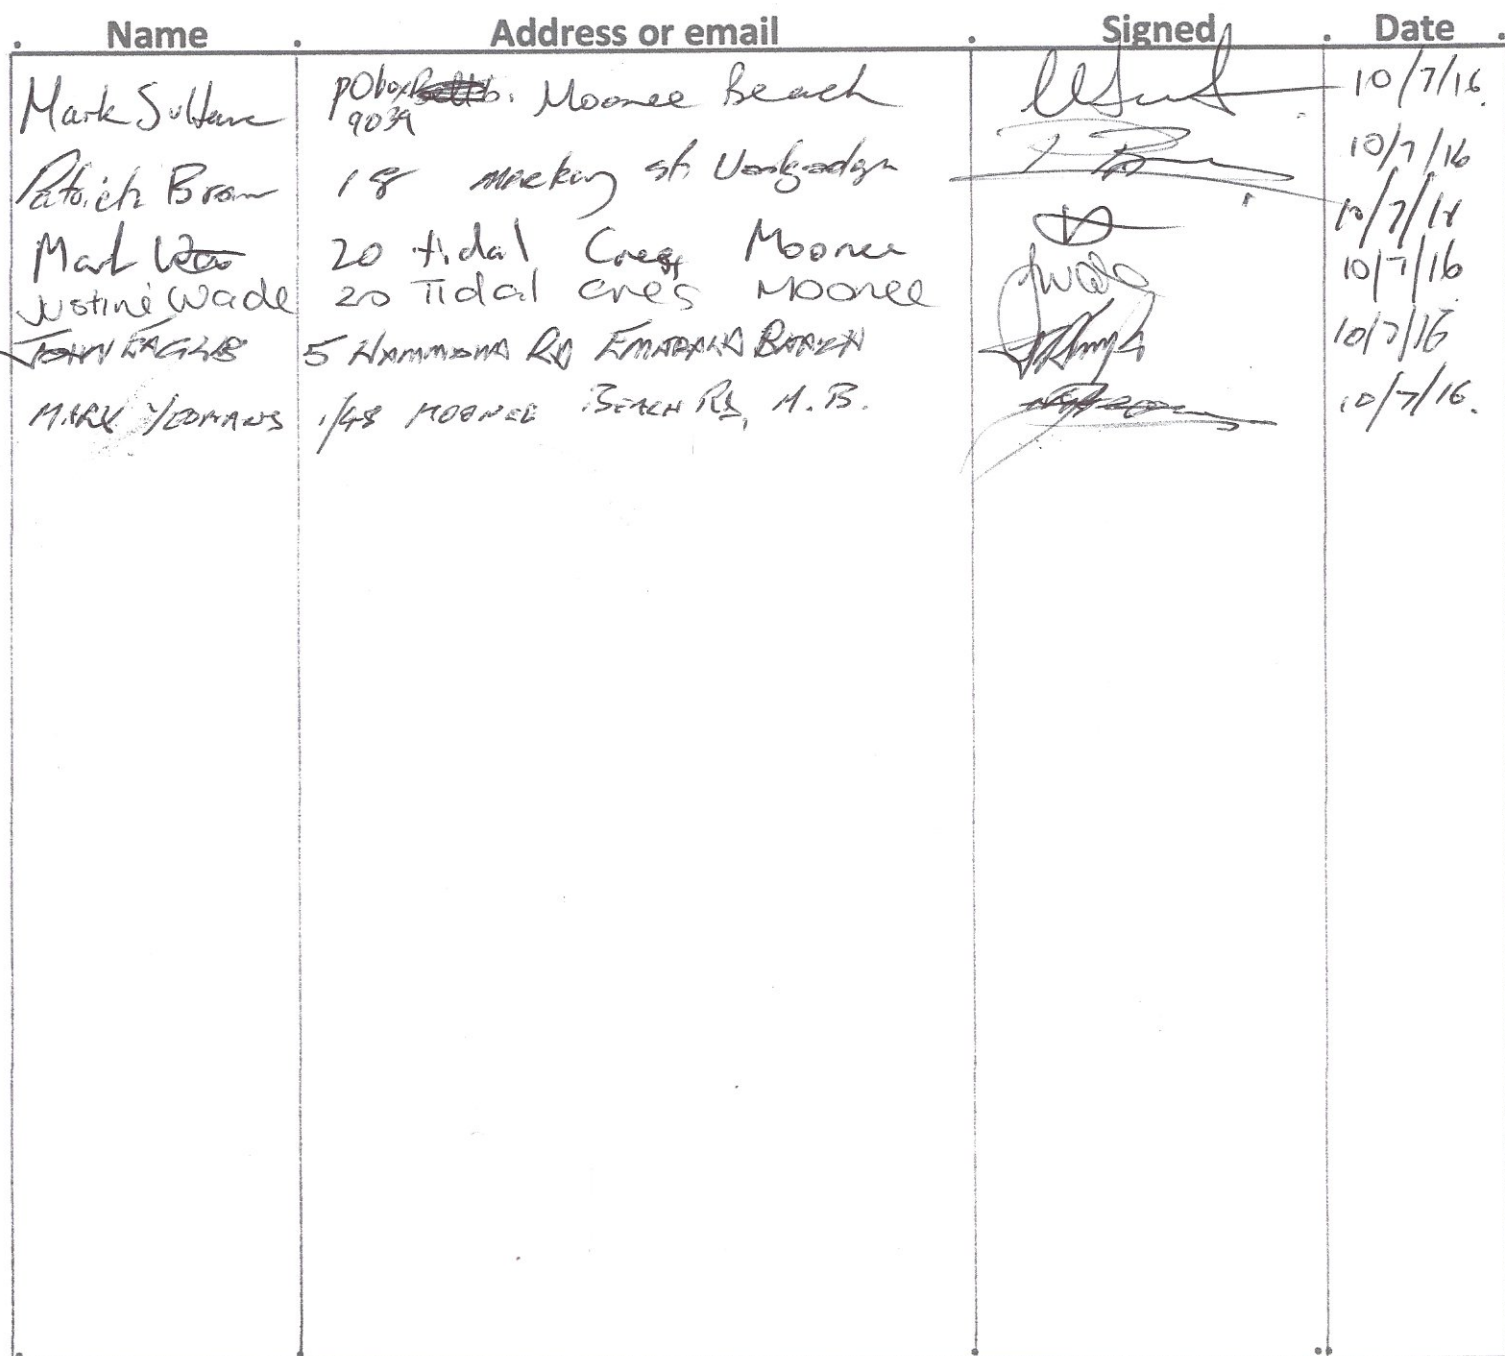 Name Address or email Signed Date
Mark PO box 9039 Moonee Beach 10/7/16.
Patrick Brown 18 st. 10/7/16
Mark 20 tidal Cres Moonee 10/7/16
Justine Wade 20 Tidal cres Moonee 10/7/16
JOHN EAGLES 5 HAMMOND RD EMERALD BEACH 10/7/16
MARK YEOMANS 1/48 MOONEE BEACH RD, M.B. 10/7/16.